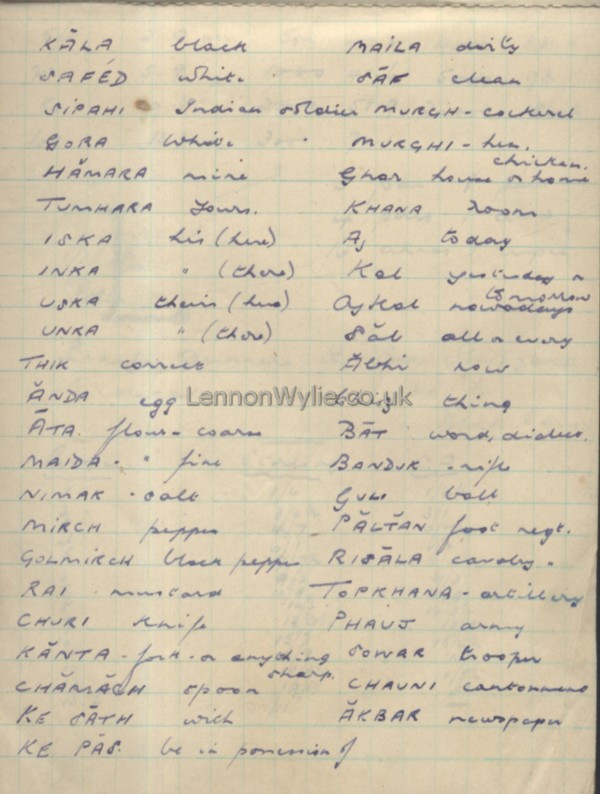 KĀLA black MAILA dirty
SAFÉD white SĀF clean
SIPAHI Indian soldier MURGH - cockerel
GORA White MURGHI - hen.
chicken.
HĂMARA mine Ghar house or home
TUMHARA Yours. KHANA room
ISKA his (here) Aj today
INKA " (there) Kal yesterday or
tomorrow
USKA theirs (here) AjKal nowadays
UNKA " (there) Săb all or every
THIK correct Ăbhi now
ĂNDA egg thing
LennonWylie.co.uk
ĀTA. flour - coarse BĀT word,
MAIDA - " fine BANDUK - rifle
NIMAK - salt GULI ball
MIRCH pepper PĂLTĂN foot regt.
GOLMIRCH black pepper RISĀLA cavalry -
RAI - mustard TOPKHANA - artillery
CHURI Knife PHAUJ army
KĀNTA - fork - or anything SOWAR trooper
sharp.
CHĂMĂCH spoon CHAUNI cantonment
KE SĀTH with ĂKBAR newspaper
KE PĀS. be in possession of